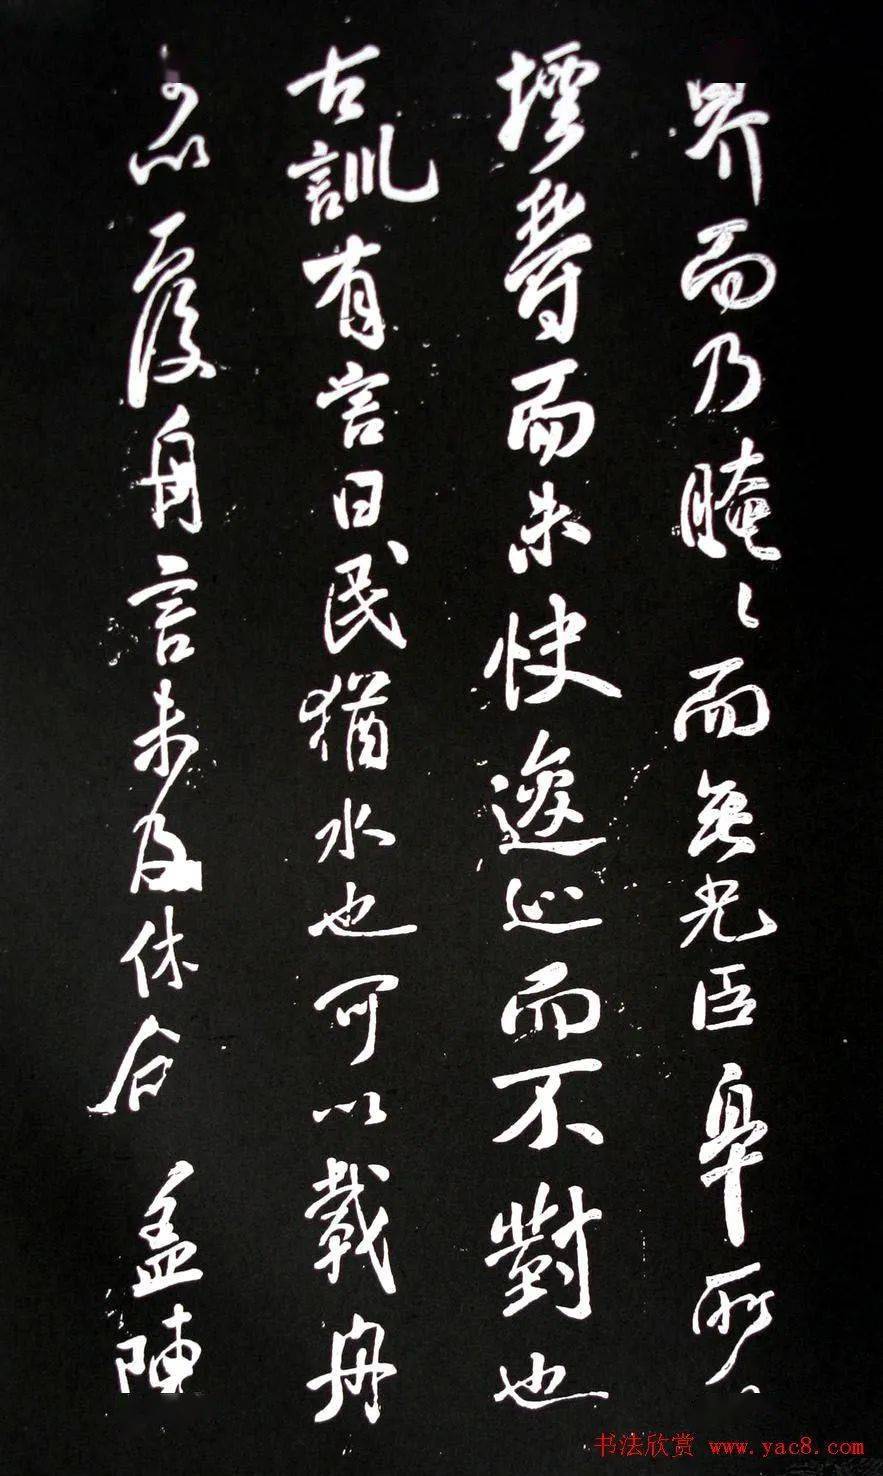 界而乃晻〻而無光臣皋所
而未快逡巡而不對也
古訓有言曰民猶水也可以載舟
可以覆舟言未及休合 陳
书法欣赏 www.yac8.com